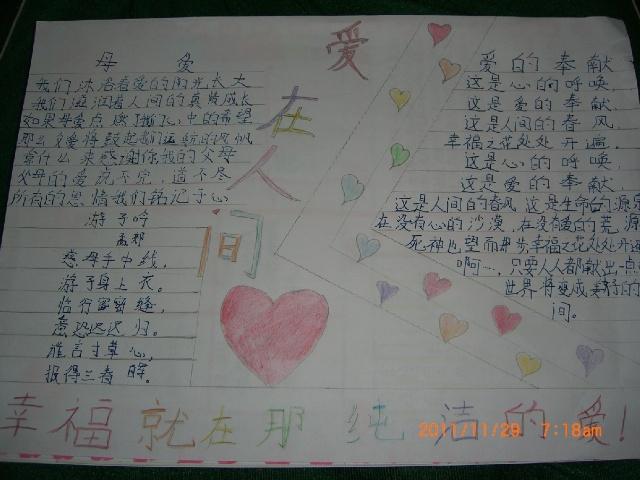 母 爱
我们沐浴着爱的阳光长大
我们滋润着人间的真爱成长
如果母爱点燃了我们心中的希望
那么父爱将鼓起我们远航的风帆
拿什么来感谢你我的父母
父母的爱说不完,道不尽
所有的恩情我们铭记于心
游子吟
孟郊
慈母手中线,
游子身上衣。
临行密密缝,
意恐迟迟归。
谁言寸草心,
报得三春晖。
爱在人间
爱的奉献
这是心的呼唤,
这是爱的奉献,
这是人间的春风,
幸福之花处处开遍,
这是心的呼唤,
这是爱的奉献,
这是人间的春风,这是生命的源泉
在没有心的沙漠,在没有爱的荒原
死神也望而却步,幸福之花处处开遍
啊…,只要人人都献出一点
世界将变成美好的
间。
幸福就在那纯洁的爱!
2011/11/29 7:18am